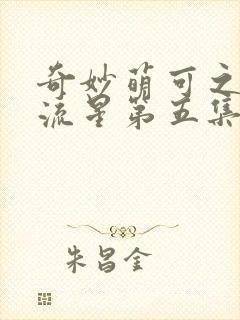 奇妙萌可之
流星第五集
朱昌金